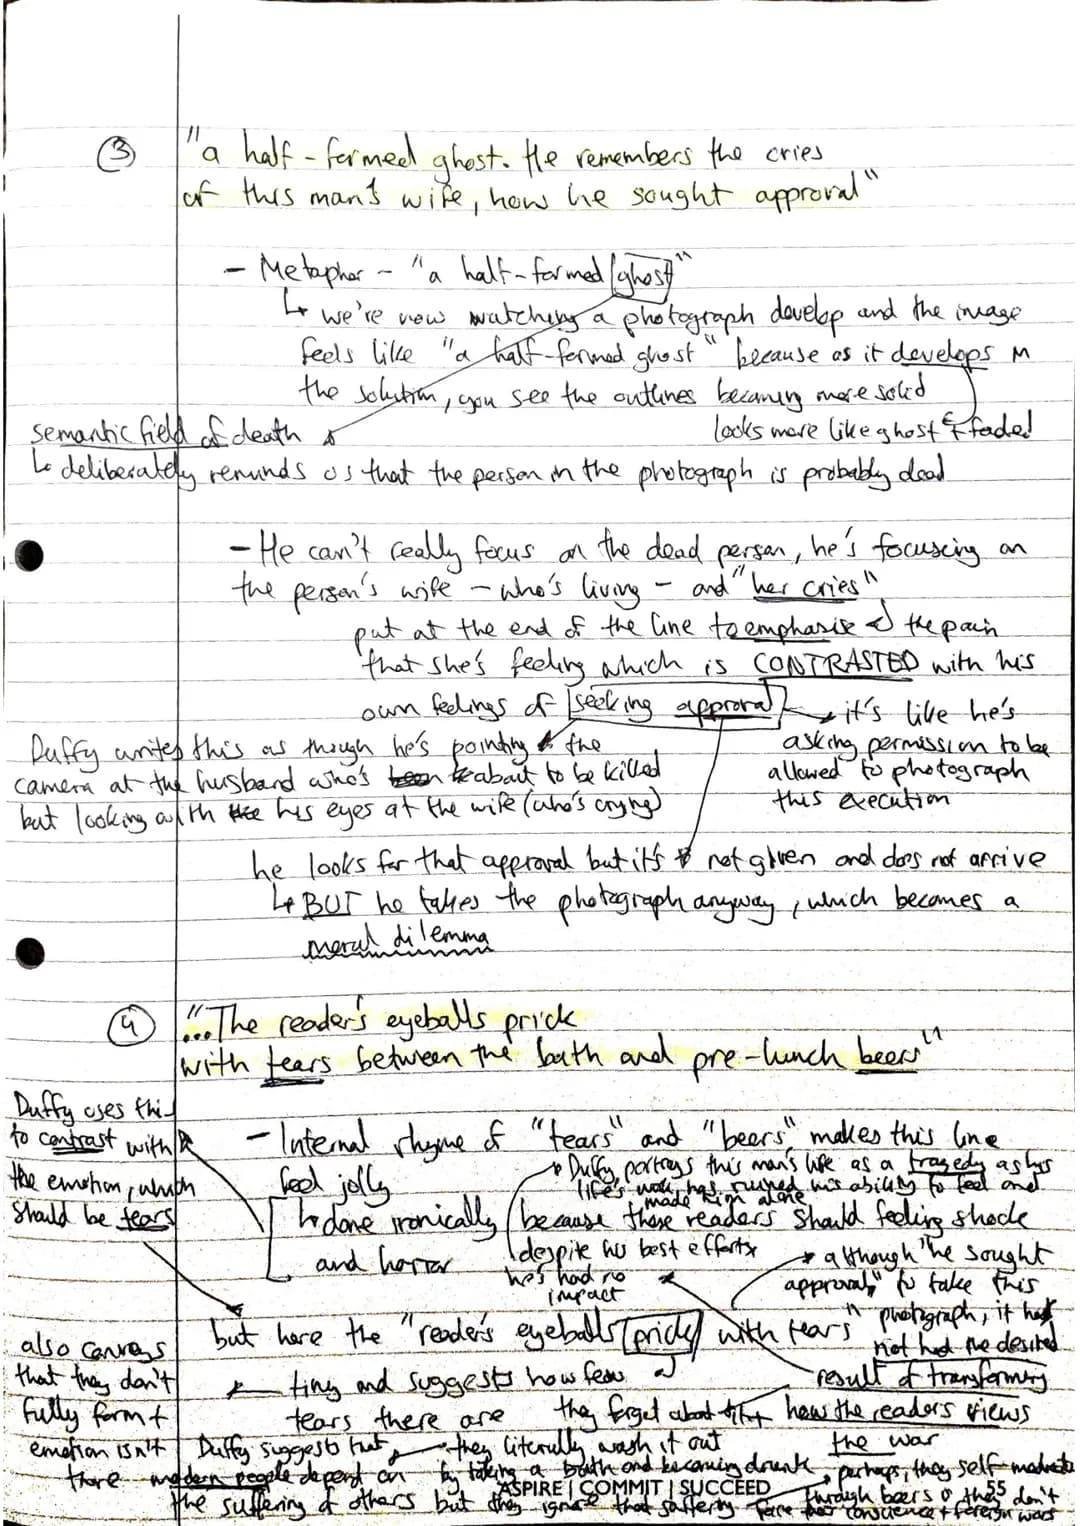 ③ "a half-formed ghost. He remembers the cries
of this man's wife, how he sought approval"
- Metaphor - "a half-formed ghost"
↳ we're now watching a photograph develop and the image
feels like "a half-formed ghost" because as it develops in
the solution, you see the outlines becoming more solid
looks more like ghost & faded
semantic field of death
↳ deliberately reminds us that the person in the photograph is probably dead
- He can't really focus on the dead person, he's focusing on
the person's wife - who's living - and "her cries"
put at the end of the line to emphasise the pain
that she's feeling which is CONTRASTED with his
own feelings of seeking approval
it's like he's
asking permission to be
allowed to photograph
this execution
Duffy writes this as though he's pointing the
camera at the husband who's about to be killed
but looking with his eyes at the wife (who's crying)
he looks for that approval but it's not given and does not arrive
↳ BUT he takes the photograph anyway, which becomes a
moral dilemma
④ "...The reader's eyeballs prick
with tears between the bath and pre-lunch beers"
Duffy uses this
to contrast with
the emotion, which
should be tears
- Internal rhyme of "tears" and "beers" makes this line
feel jolly
↳ done ironically because these readers should feeling shock
and horror
Duffy portrays this man's life as a tragedy as his
life's work has ruined his ability to feel and
made him alone
despite his best efforts
he's had no
impact
although "he sought
approval" to take this
photograph, it had
not had the desired
result of transforming
how the readers views
the war
but here the "reader's eyeballs prick with tears"
tiny and suggests how few
tears there are
also conveys
that they don't
fully form +
emotion isn't
there
they forget about it +
they literally wash it out
by taking a bath and becoming drunk
Duffy suggests that
modern people depend on
the suffering of others but they ignore that suffering
perhaps, they self-medicate
through beers so they don't
face their conscience + foreign wars
ASPIRE | COMMIT | SUCCEED
55